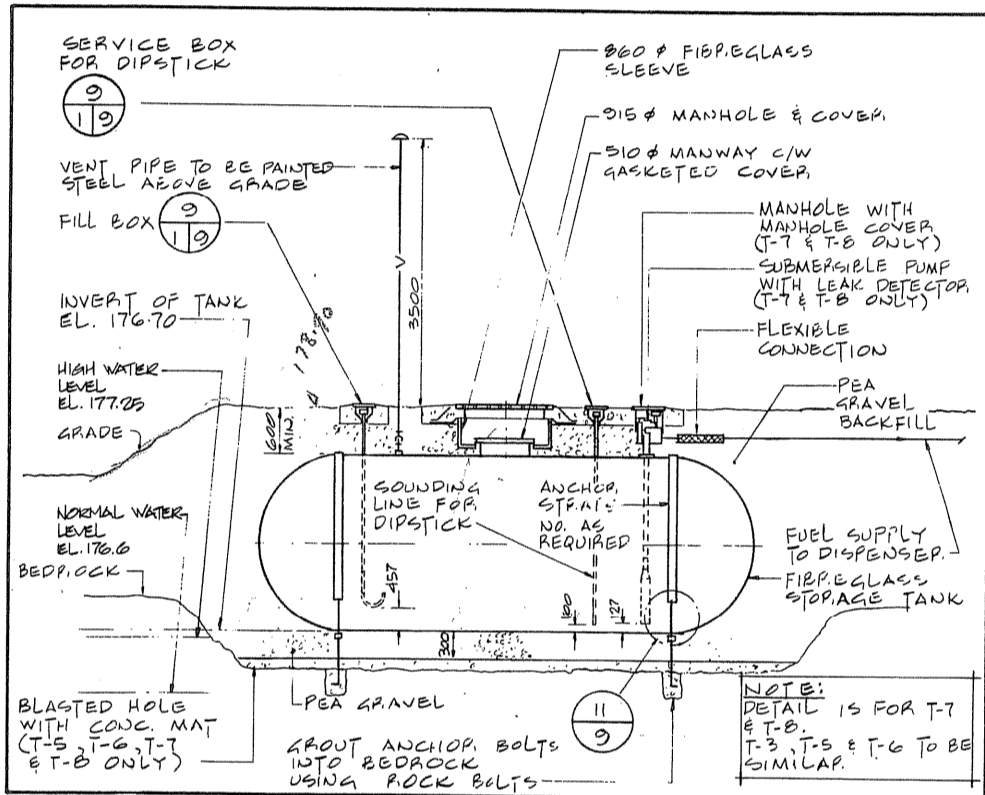 SERVICE BOX
FOR DIPSTICK
9
1 9
VENT PIPE TO BE PAINTED
STEEL ABOVE GRADE
FILL BOX
9
1 9
INVERT OF TANK
EL. 176.70
HIGH WATER
LEVEL
EL. 177.25
GRADE
NORMAL WATER
LEVEL
EL. 176.6
BEDROCK
BLASTED HOLE
WITH CONC. MAT
(T-5, T-6, T-7
& T-8 ONLY)
860 ⌀ FIBREGLASS
SLEEVE
915 ⌀ MANHOLE & COVER
510 ⌀ MANWAY C/W
GASKETED COVER
MANHOLE WITH
MANHOLE COVER
(T-7 & T-8 ONLY)
SUBMERSIBLE PUMP
WITH LEAK DETECTOR
(T-7 & T-8 ONLY)
FLEXIBLE
CONNECTION
PEA
GRAVEL
BACKFILL
V
3500
600
MIN.
SOUNDING
LINE FOR
DIPSTICK
ANCHOR
STRAPS
NO. AS
REQUIRED
457
100
127
300
FUEL SUPPLY
TO DISPENSER
FIBREGLASS
STORAGE TANK
PEA GRAVEL
GROUT ANCHOR BOLTS
INTO BEDROCK
USING ROCK BOLTS
11
9
NOTE:
DETAIL IS FOR T-7
& T-8.
T-3, T-5 & T-6 TO BE
SIMILAR.